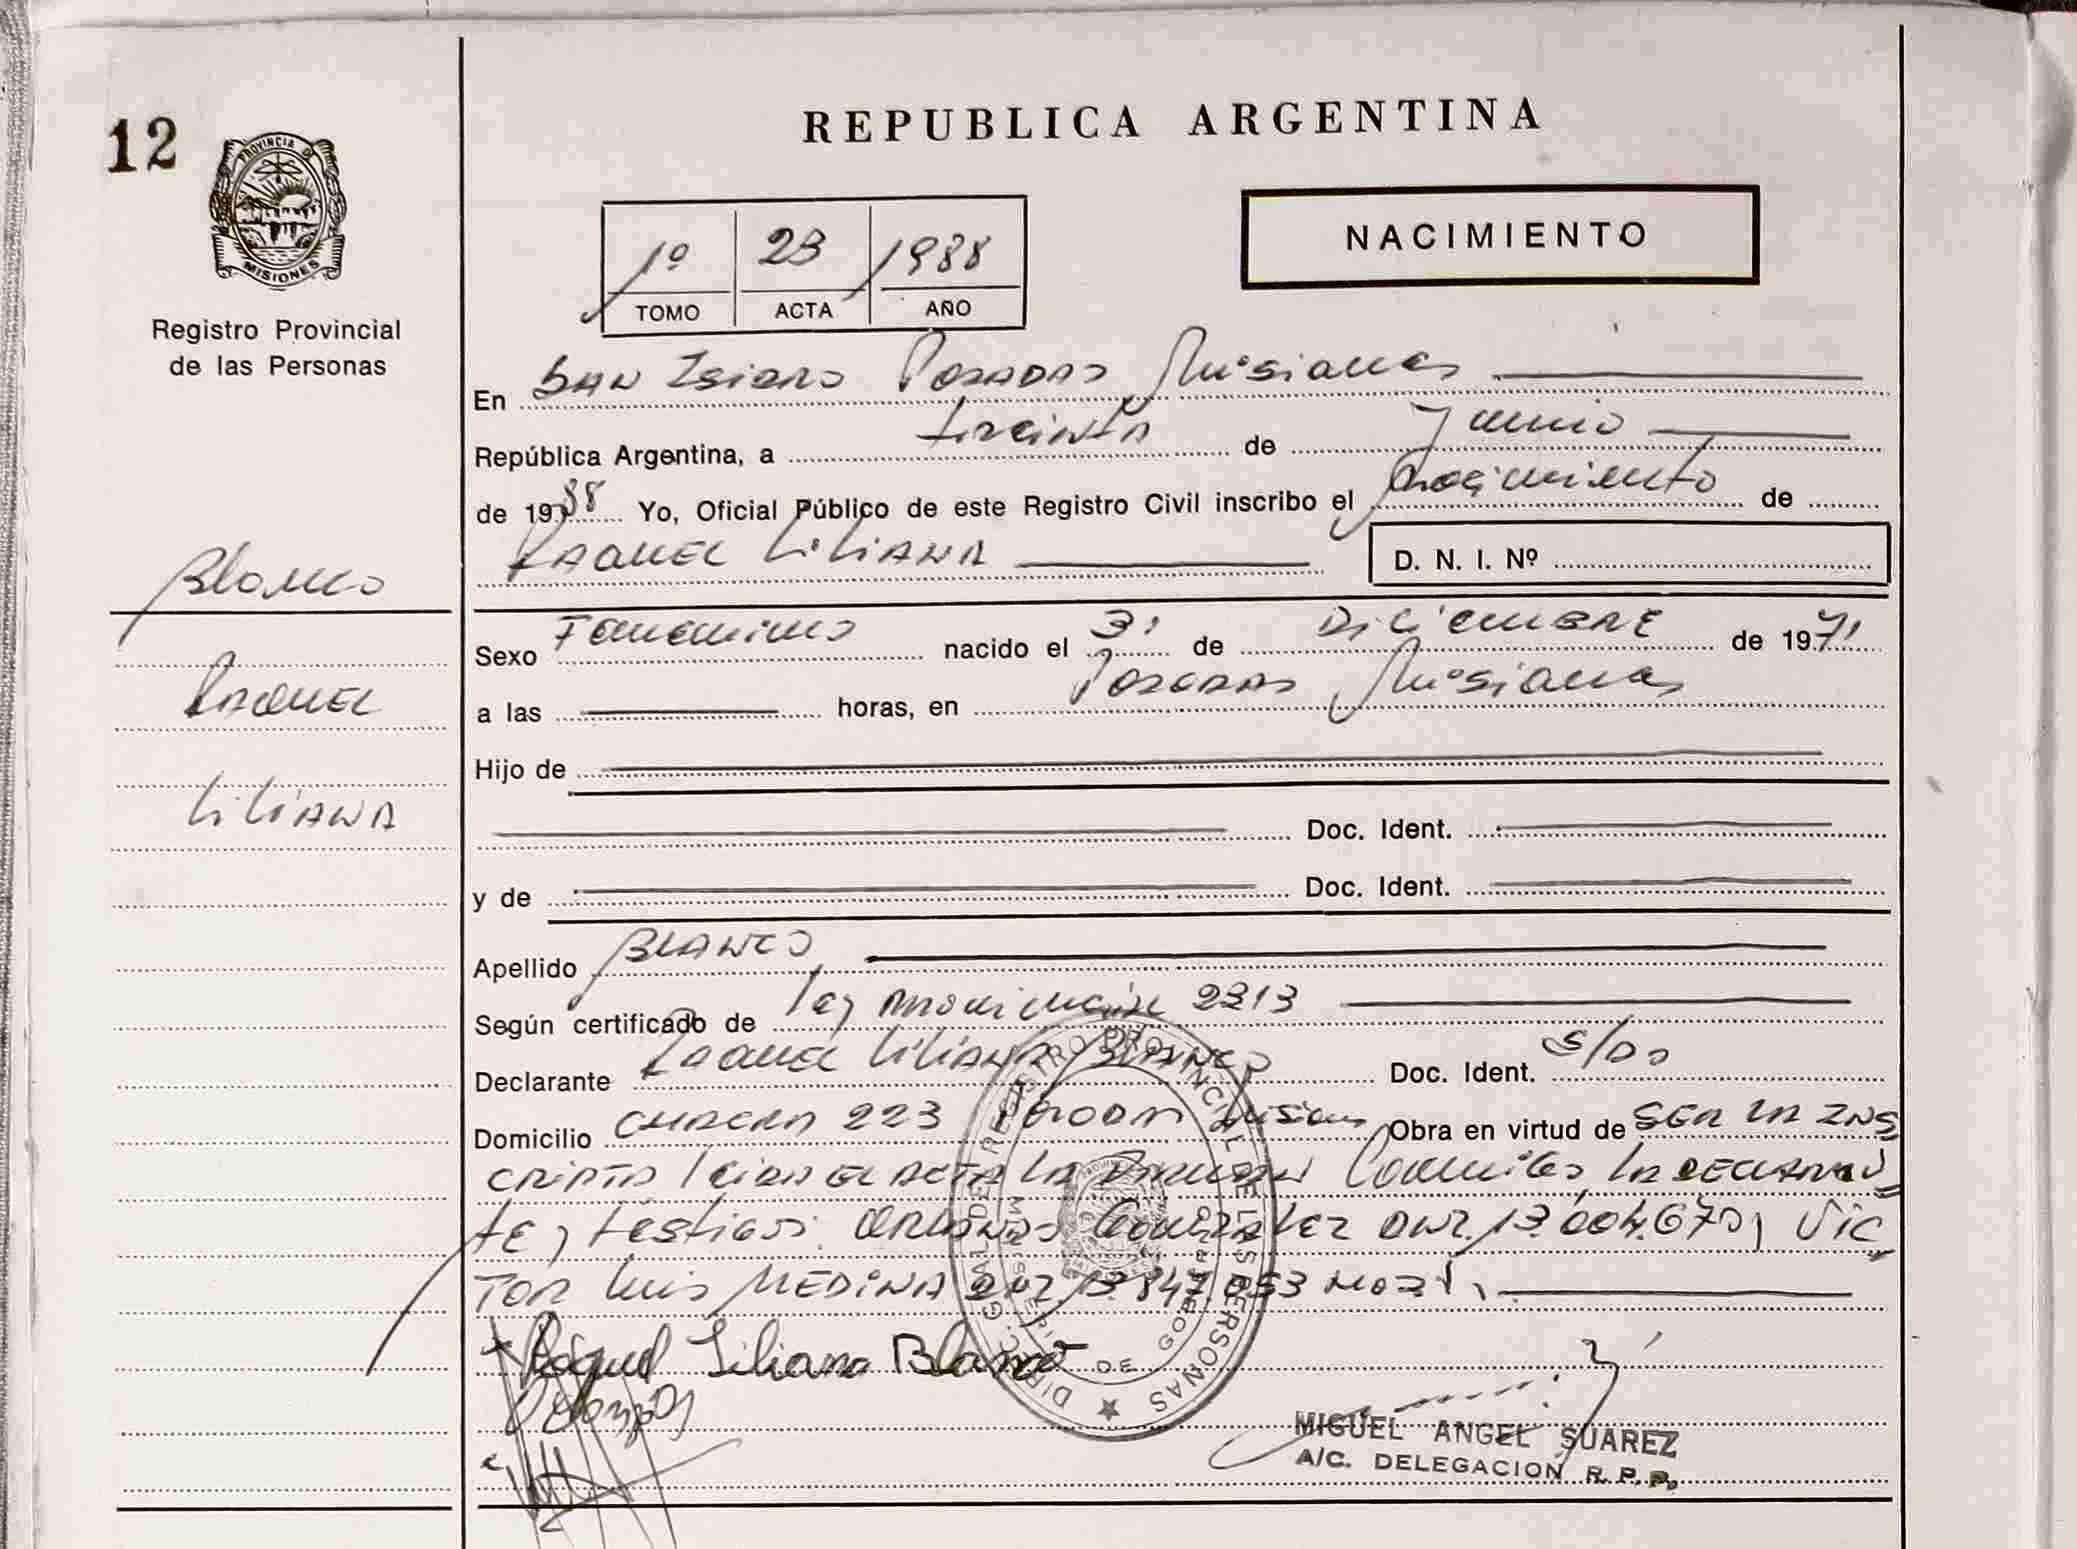 12
PROVINCIA DE
MISIONES
Registro Provincial
de las Personas
REPUBLICA ARGENTINA
1º 23 1988
TOMO ACTA AÑO
NACIMIENTO
En San Isidro Posadas Misiones
República Argentina, a treinta de Junio
de 1988 Yo, Oficial Público de este Registro Civil inscribo el nacimiento de
Raquel Liliana D. N. I. Nº
Blanco
Raquel
Liliana
Sexo Femenino nacido el 31 de Diciembre de 1971
a las horas, en Posadas Misiones
Hijo de
Doc. Ident.
y de Doc. Ident.
Apellido Blanco
Según certificado de ley 2213
Declarante Raquel Liliana Blanco Doc. Ident. S/D
Domicilio Chacra 223 Misiones Obra en virtud de ser la ins
cripta leida el acta la conmigo la declaran
te y testigos González DNI 13.004.670 y Vic
tor Luis Medina DNI 13.847.053
Raquel Liliana Blanco
DIRECC. GRAL. DE REGISTRO PROVINCIAL DE LAS PERSONAS
MIGUEL ANGEL SUAREZ
A/C. DELEGACION R. P. P.